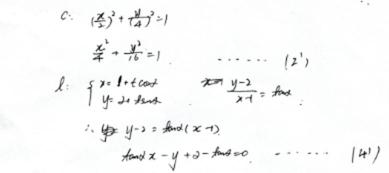 C: (x/2)² + (y/4)² = 1
x²/4 + y²/16 = 1 ...... (2')
l: { x = 1 + t cosα y-2/x-1 = tanα
y = 2 + t sinα
∴ y - 2 = tanα (x - 1)
tanα x - y + 2 - tanα = 0 ...... (4')